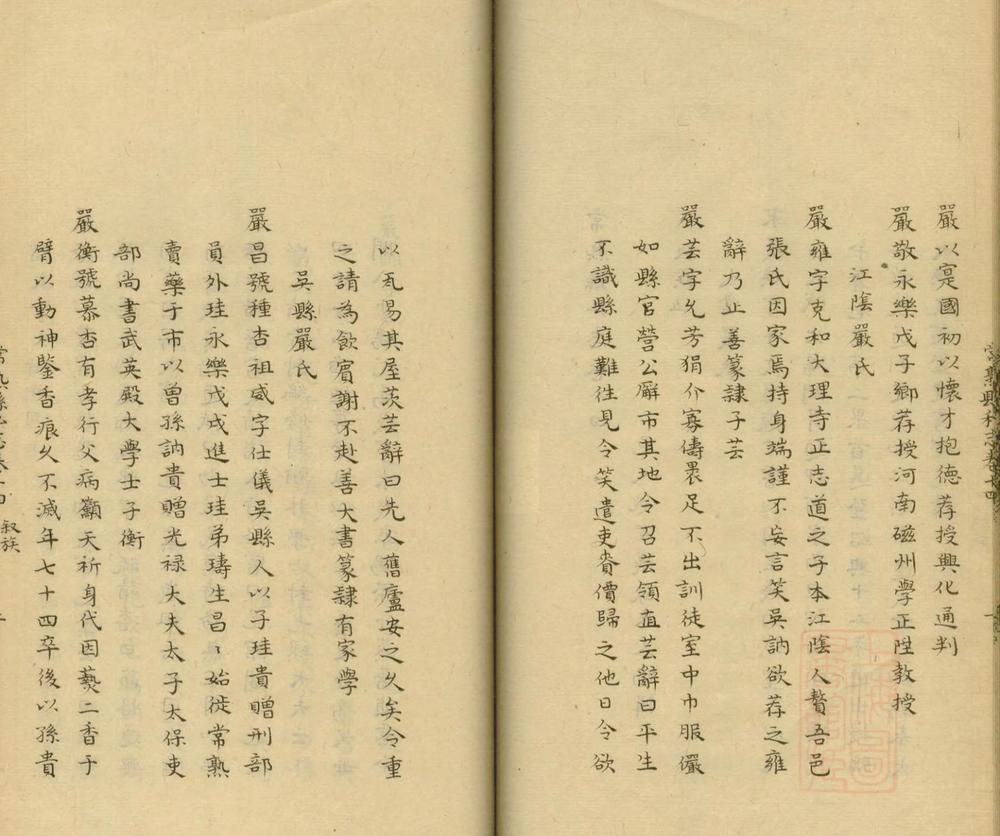 嚴以寔國初以懷才抱德荐授興化通判
嚴敬永樂戊子鄉荐授河南磁州學正陞教授
江陰嚴氏
嚴雍字克和大理寺正志道之子本江陰人贅吾邑
張氏因家焉持身端謹不妄言笑吳訥欲荐之雍
辭乃止善篆隸子芸
嚴芸字允芳狷介寡儔裹足不出訓徒室中巾服儼
如縣官營公廨市其地令召芸領直芸辭曰平生
不識縣庭難往見令笑遣吏賫價歸之他日令欲
以瓦易其屋茨芸辭曰先人舊廬安之久矣令重
之請為飲賓謝不赴善大書篆隸有家學
吳縣嚴氏
嚴昌號種杏祖威字仕儀吳縣人以子珪貴贈刑部
員外珪永樂戊戌進士珪弟璹生昌〻始徙常熟
賣藥于市以曾孫訥貴贈光祿大夫太子太保吏
部尚書武英殿大學士子衡
嚴衡號慕杏有孝行父病籲天祈身代因爇二香于
臂以動神鑒香痕久不滅年七十四卒後以孫貴
叙族